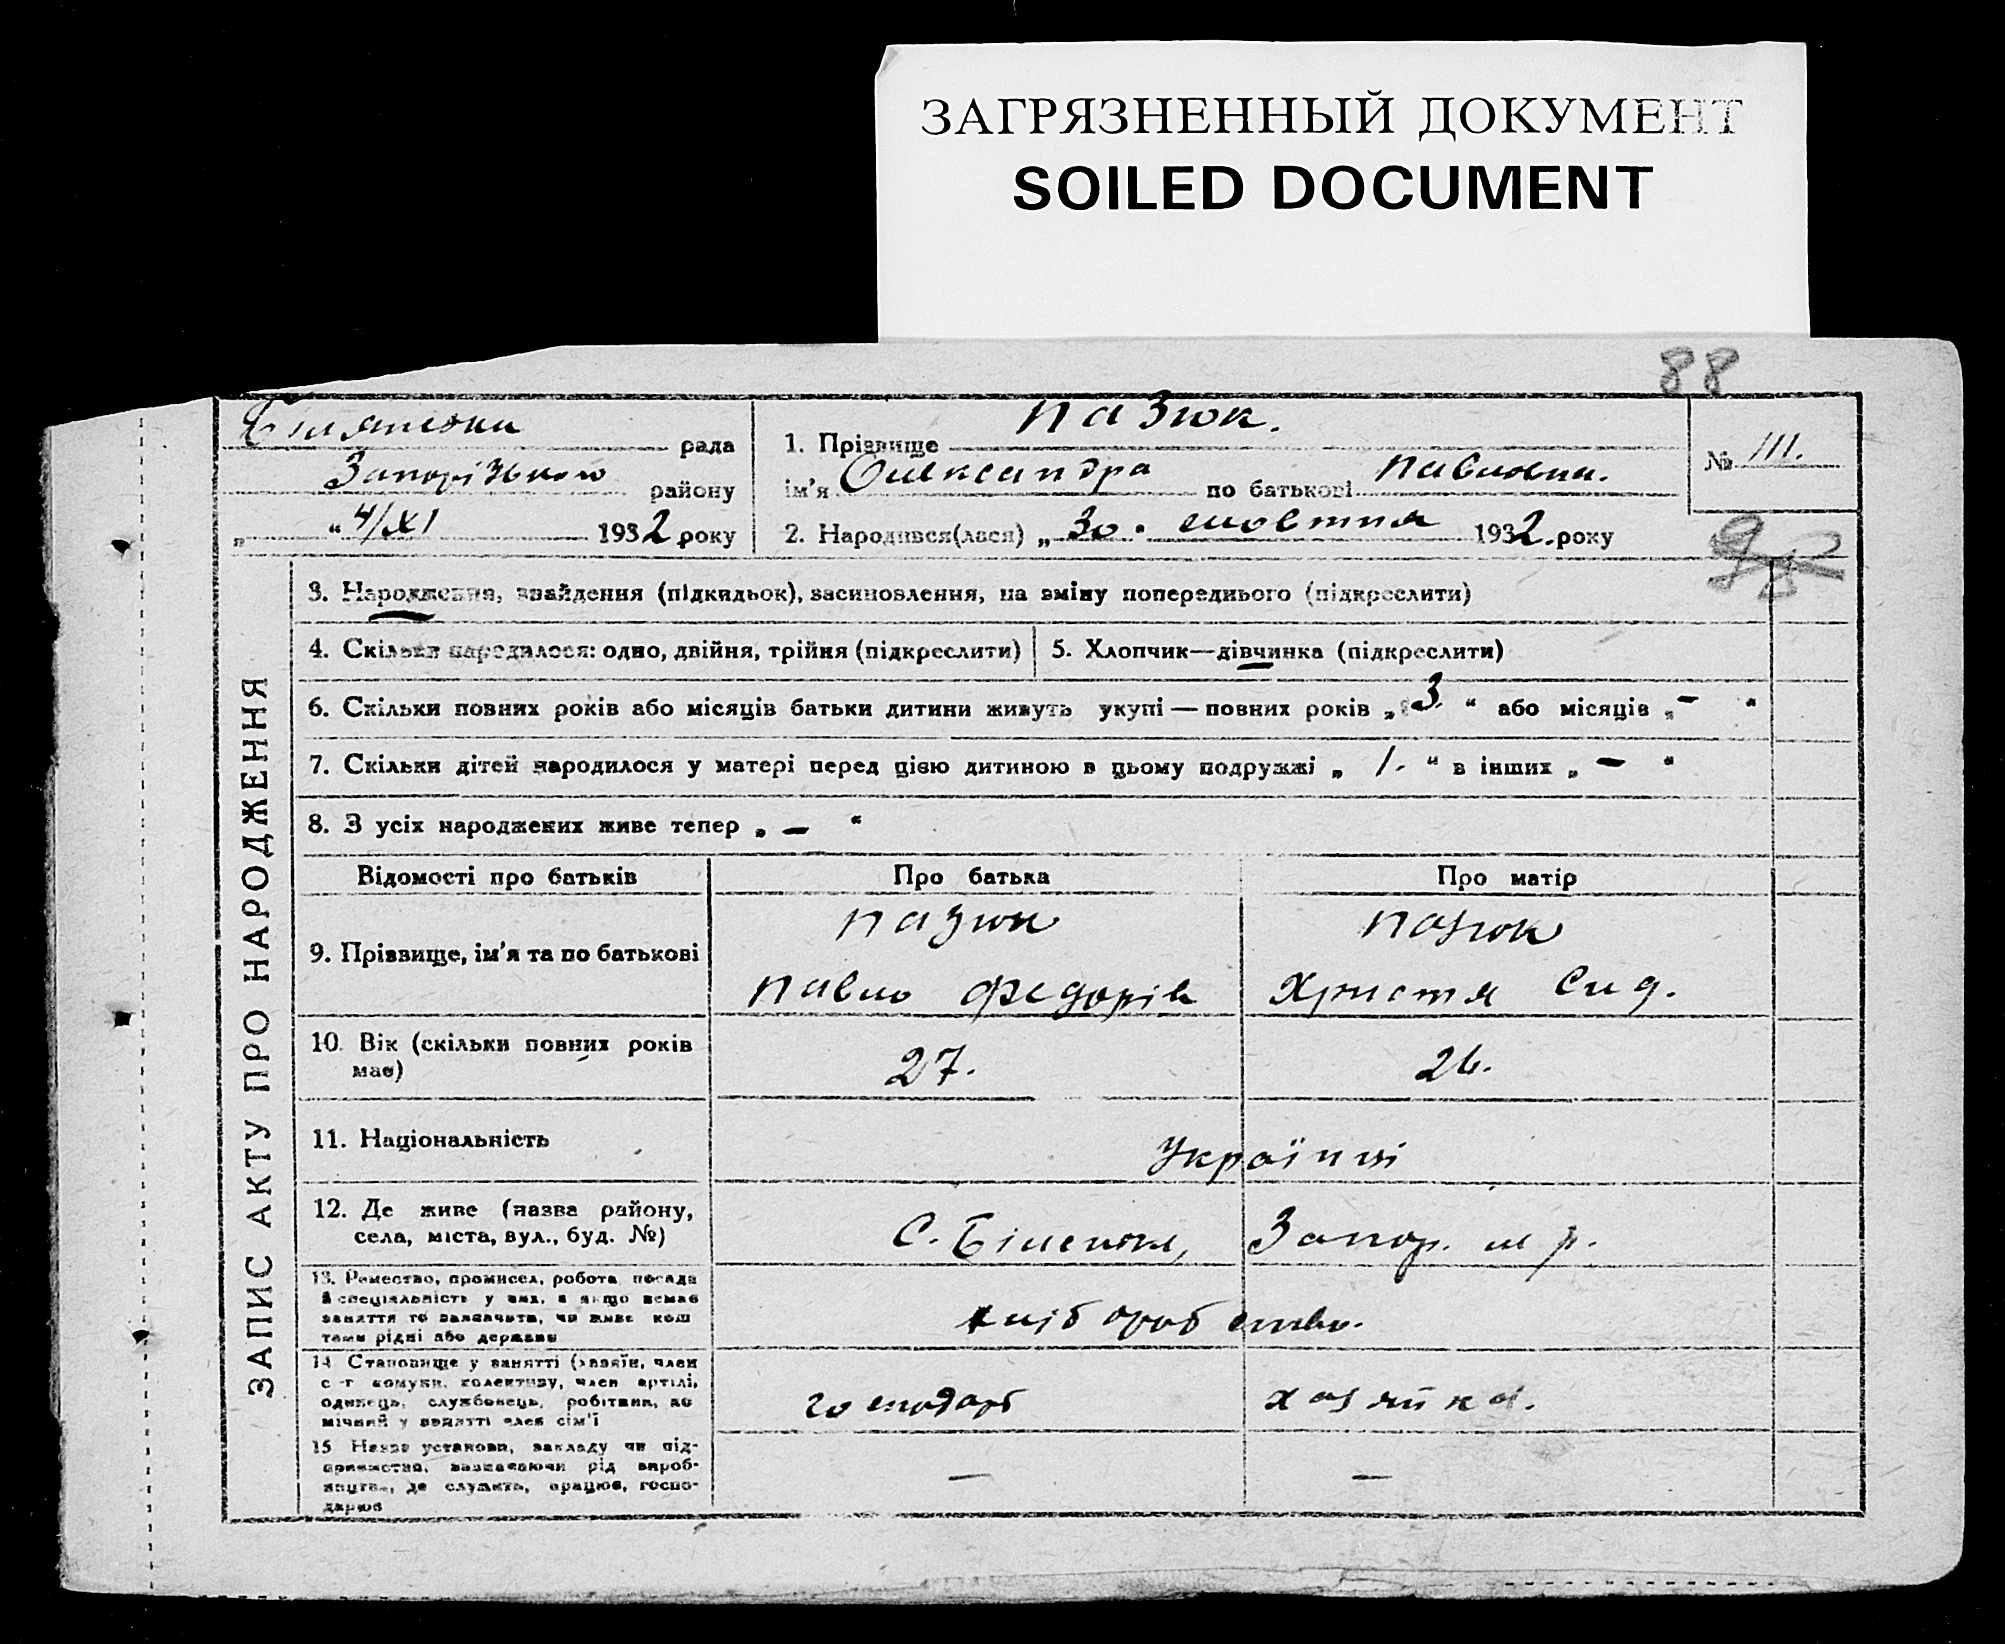 ЗАГРЯЗНЕННЫЙ ДОКУМЕНТ
SOILED DOCUMENT
88
рада
Запорізького району
„ “ 4/XI 1932 року
1. Прізвище Пазюк.
ім'я Олександра по батькові Павлівна.
2. Народився(лася) „ 30. жовтня 1932. року
№ 111.
ЗАПИС АКТУ ПРО НАРОДЖЕННЯ
3. Народження, знайдення (підкидьок), засиновлення, на зміну попереднього (підкреслити)
4. Скільки народилося: одно, двійня, трійня (підкреслити)
5. Хлопчик—дівчинка (підкреслити)
6. Скільки повних років або місяців батьки дитини живуть укупі — повних років „ 3. “ або місяців „ – “
7. Скільки дітей народилося у матері перед цією дитиною в цьому подружжі „ 1. “ в інших „ – “
8. З усіх народжених живе тепер „ – “
Відомості про батьків
Про батька
Про матір
9. Прізвище, ім'я та по батькові
Пазюк
Павло Федорів
Пазюк
Христя Сид.
10. Вік (скільки повних років
має)
27.
26.
11. Національність
Українці
12. Де живе (назва району,
села, міста, вул., буд. №)
С. Біленьке, Запор. р.
13. Ремество, промисел, робота, посада
й спеціяльність у них, а якщо немає
заняття то зазначити, чи живе кош
тами рідні або держави
хліборобство.
14 Становище у занятті (хазяїн, член
с-г комуни, колективу, член артілі,
одинець, службовець, робітник, по
мічний у занятті член сім'ї
господарь
хазяйка.
15 Назва установи, закладу чи під-
приємства, зазначаючи рід вироб-
ництва, де служить, працює, госпо-
дарює
–
–